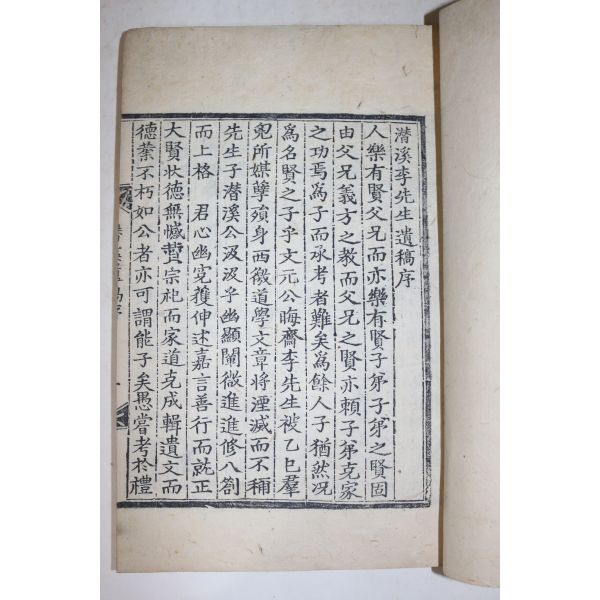 潛溪李先生遺稿序
人樂有賢父兄而亦樂有賢子弟子弟之賢固
由父兄義方之敎而父兄之賢亦頼子弟克家
之功焉爲子而承考者難矣爲餘人子猶然況
爲名賢之子乎文元公晦齋李先生被乙巳羣
兇所媒孽殞身西徼道學文章将湮滅而不稱
先生子潛溪公汲汲乎幽顯闡微進進修八劄
而上格 君心幽寃獲伸述嘉言善行而就正
大賢狀德無憾賛宗祀而家道克成輯遺文而
德業不朽如公者亦可謂能子矣愚嘗考於禮